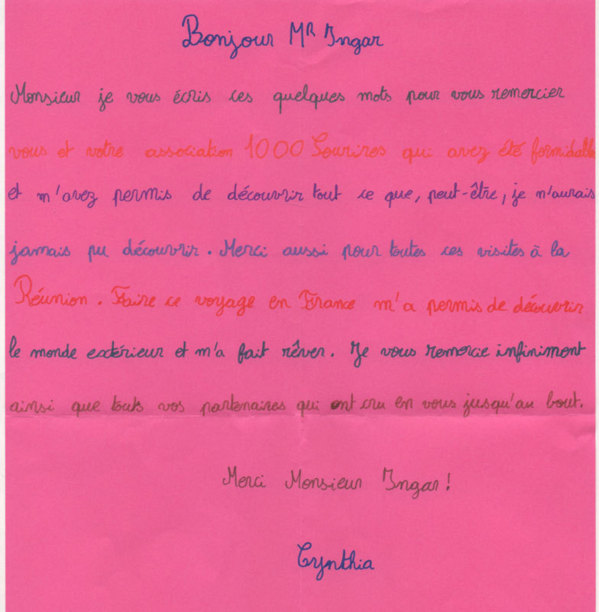 Bonjour Mr Ingar
Monsieur je vous écris ces quelques mots pour vous remercier
vous et votre association 1000 Sourires qui avez été formidable
et m'avez permis de découvrir tout ce que, peut-être, je n'aurais
jamais pu découvrir. Merci aussi pour toutes ces visites à la
Réunion. Faire ce voyage en France m'a permis de découvrir
le monde extérieur et m'a fait rêver. Je vous remercie infiniment
ainsi que touts vos partenaires qui ont cru en vous jusqu'au bout.
Merci Monsieur Ingar!
Cynthia